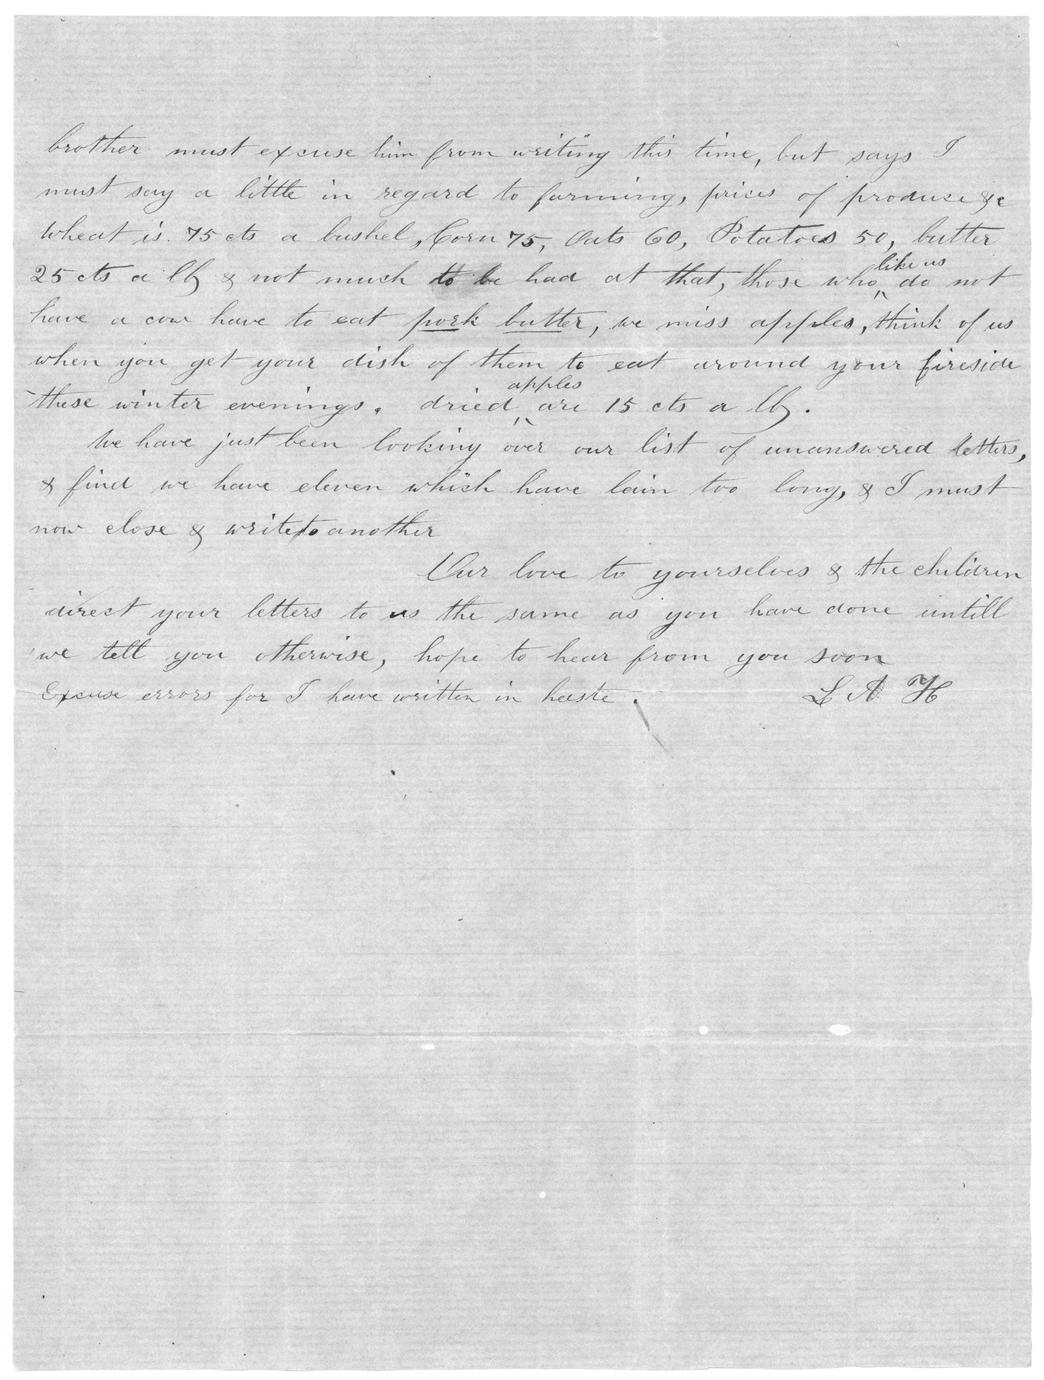 brother must excuse him from writing this time, but says I
must say a little in regard to farming, prices of produce &c
Wheat is 75 cts a bushel, Corn 75, Oats 60, Potatoes 50, butter
25 cts a lb & not much to be had at that, those who like us do not
have a cow have to eat pork butter, we miss apples, think of us
when you get your dish of them to eat around your fireside
these winter evenings. dried apples are 15 cts a lb.
We have just been looking over our list of unanswered letters,
& find we have eleven which have lain too long, & I must
now close & write to another
Our love to yourselves & the children
direct your letters to us the same as you have done untill
we tell you otherwise, hope to hear from you soon
Excuse errors for I have written in haste. L A H